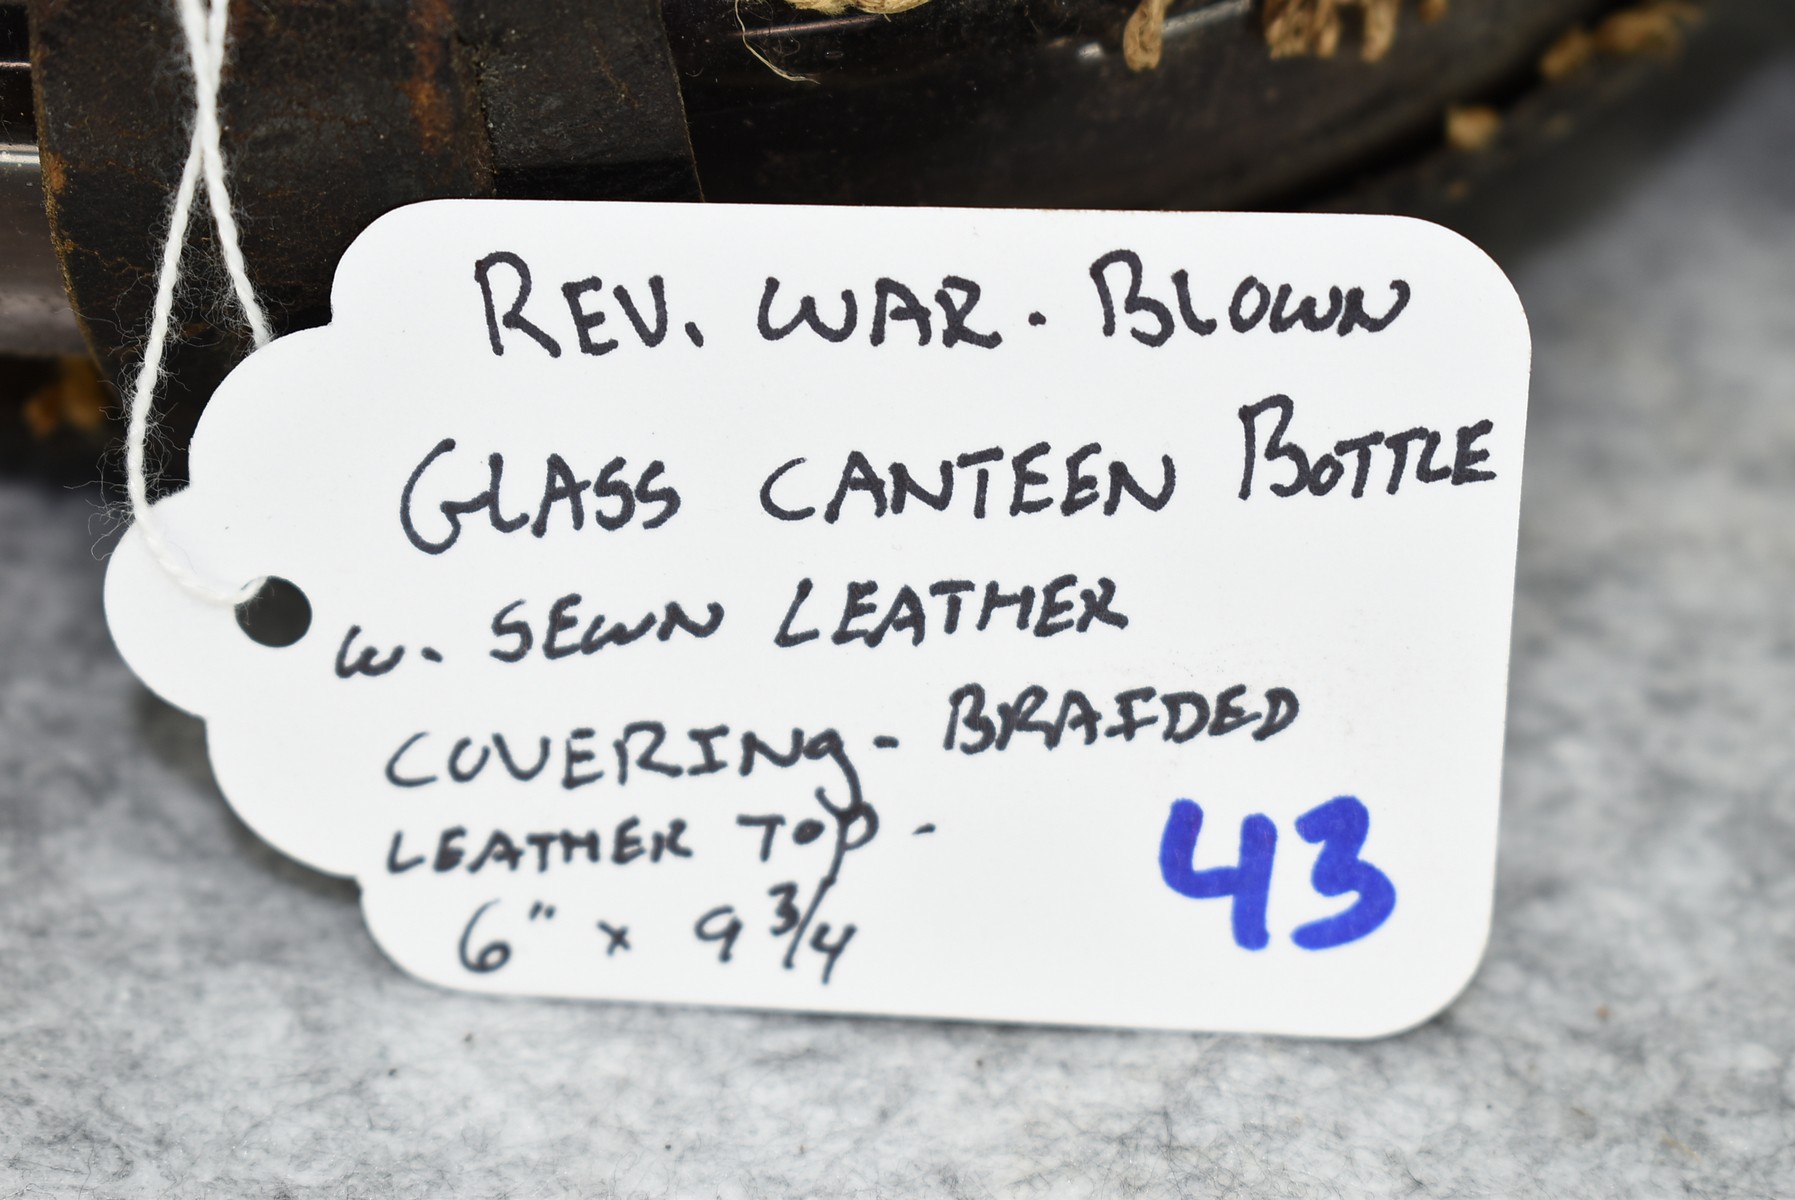 REV. WAR. BLOWN
GLASS CANTEEN BOTTLE
W. SEWN LEATHER
COVERING - BRAIDED
LEATHER TOP -
6" x 9 3/4
43